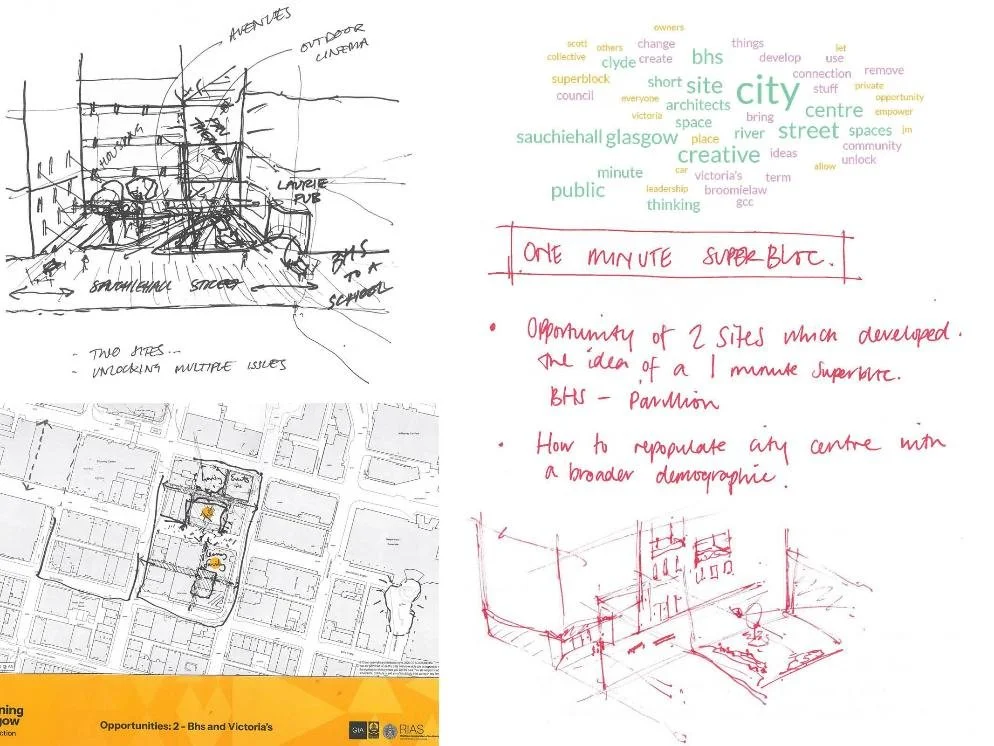 AVENUES
OUTDOOR
CINEMA
HOUSING
LAURIE
PUB
BHS
TO A
SCHOOL
SAUCHIEHALL STREET
- TWO SITES...
- UNLOCKING MULTIPLE ISSUES
owners
scott others change things let
collective clyde create bhs develop use
superblock short site city connection remove
council everyone architects stuff private
victoria space bring centre opportunity
empower
sauchiehall glasgow place river street spaces jm
creative ideas community
minute car victoria's term allow unlock
public leadership broomielaw
thinking gcc
ONE MINUTE SUPERBLOC.
• Opportunity of 2 Sites which developed.
the idea of a 1 minute Superbloc.
BHS - Pavillion
• How to repopulate city centre with
a broader demographic.
ning
gow
ction
Opportunities: 2 - Bhs and Victoria's
GIA
RIAS